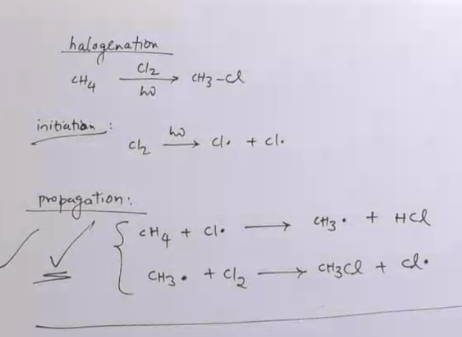 halogenation
CH4 Cl2 hν → CH3-Cl
initiation:
Cl2 hν → Cl• + Cl•
propagation:
CH4 + Cl• → CH3• + HCl
CH3• + Cl2 → CH3Cl + Cl•